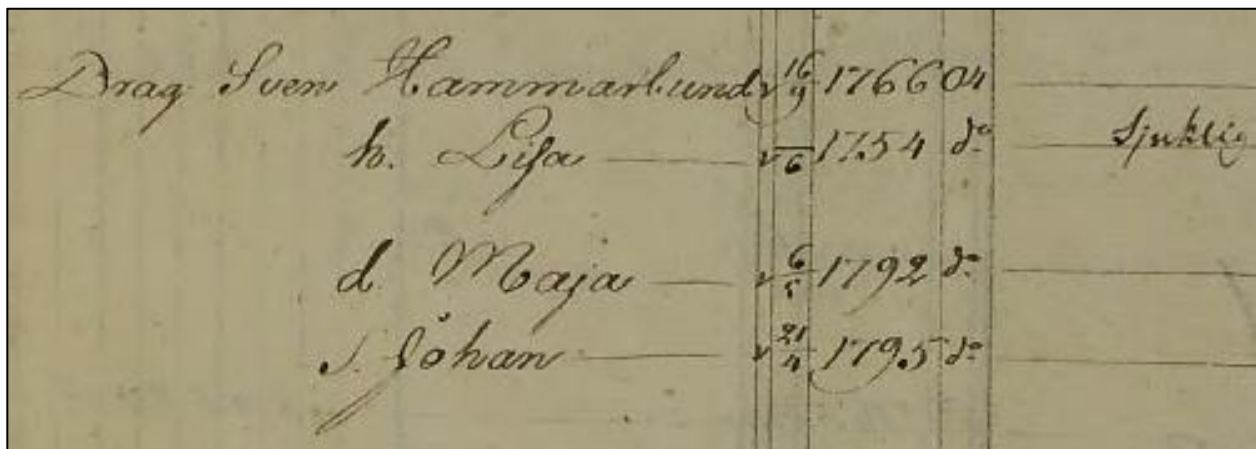 Drag Sven Hammarlund v 16/9 1766 04
h. Lisa v —/6 1754 do Sjuklig
d. Maja v 6/5 1792 do
S. Johan v 21/4 1795 do